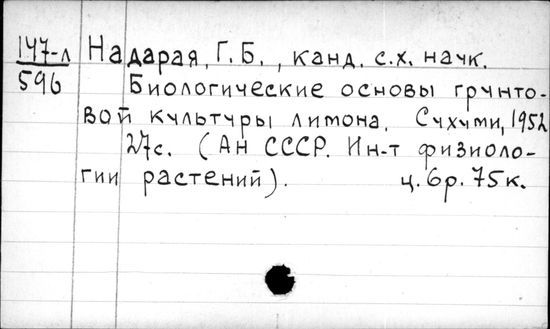 147-л Надарая, Г.Б., канд. с.х. наук.
596 Биологические основы грунто-
вой культуры лимона. Сухуми, 1952
27с. (Ан СССР. Ин-т физиоло-
гии растений). ц. 6р. 75к.